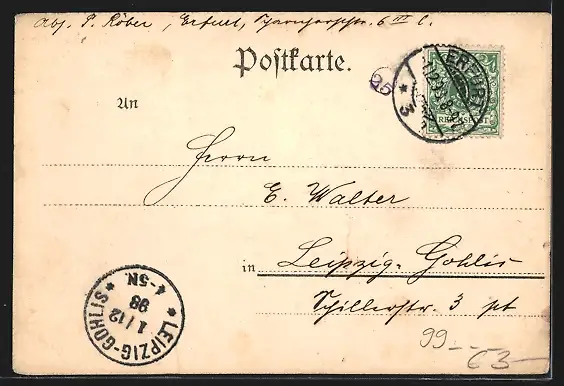 Abs. P. Röber, Erfurt, 6 III l.
Postkarte.
25
ERFURT
* 3
REICHSPOST
An
Herrn
E. Walter
in Leipzig-Gohlis
Schillerstr. 3 pt
LEIPZIG-GOHLIS
1/12
98
4-5N.
99
63-